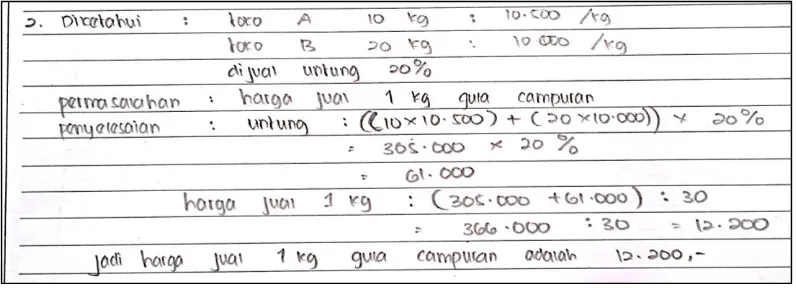 2. Diketahui : toko A 10 kg : 10.500 /kg
toko B 20 kg : 10.000 /kg
dijual untung 20%
permasalahan : harga jual 1 kg gula campuran
penyelesaian : untung : ((10 × 10.500) + (20 × 10.000)) × 20%
= 305.000 × 20 %
= 61.000
harga jual 1 kg : (305.000 + 61.000) : 30
= 366.000 : 30 = 12.200
jadi harga jual 1 kg gula campuran adalah 12.200,-